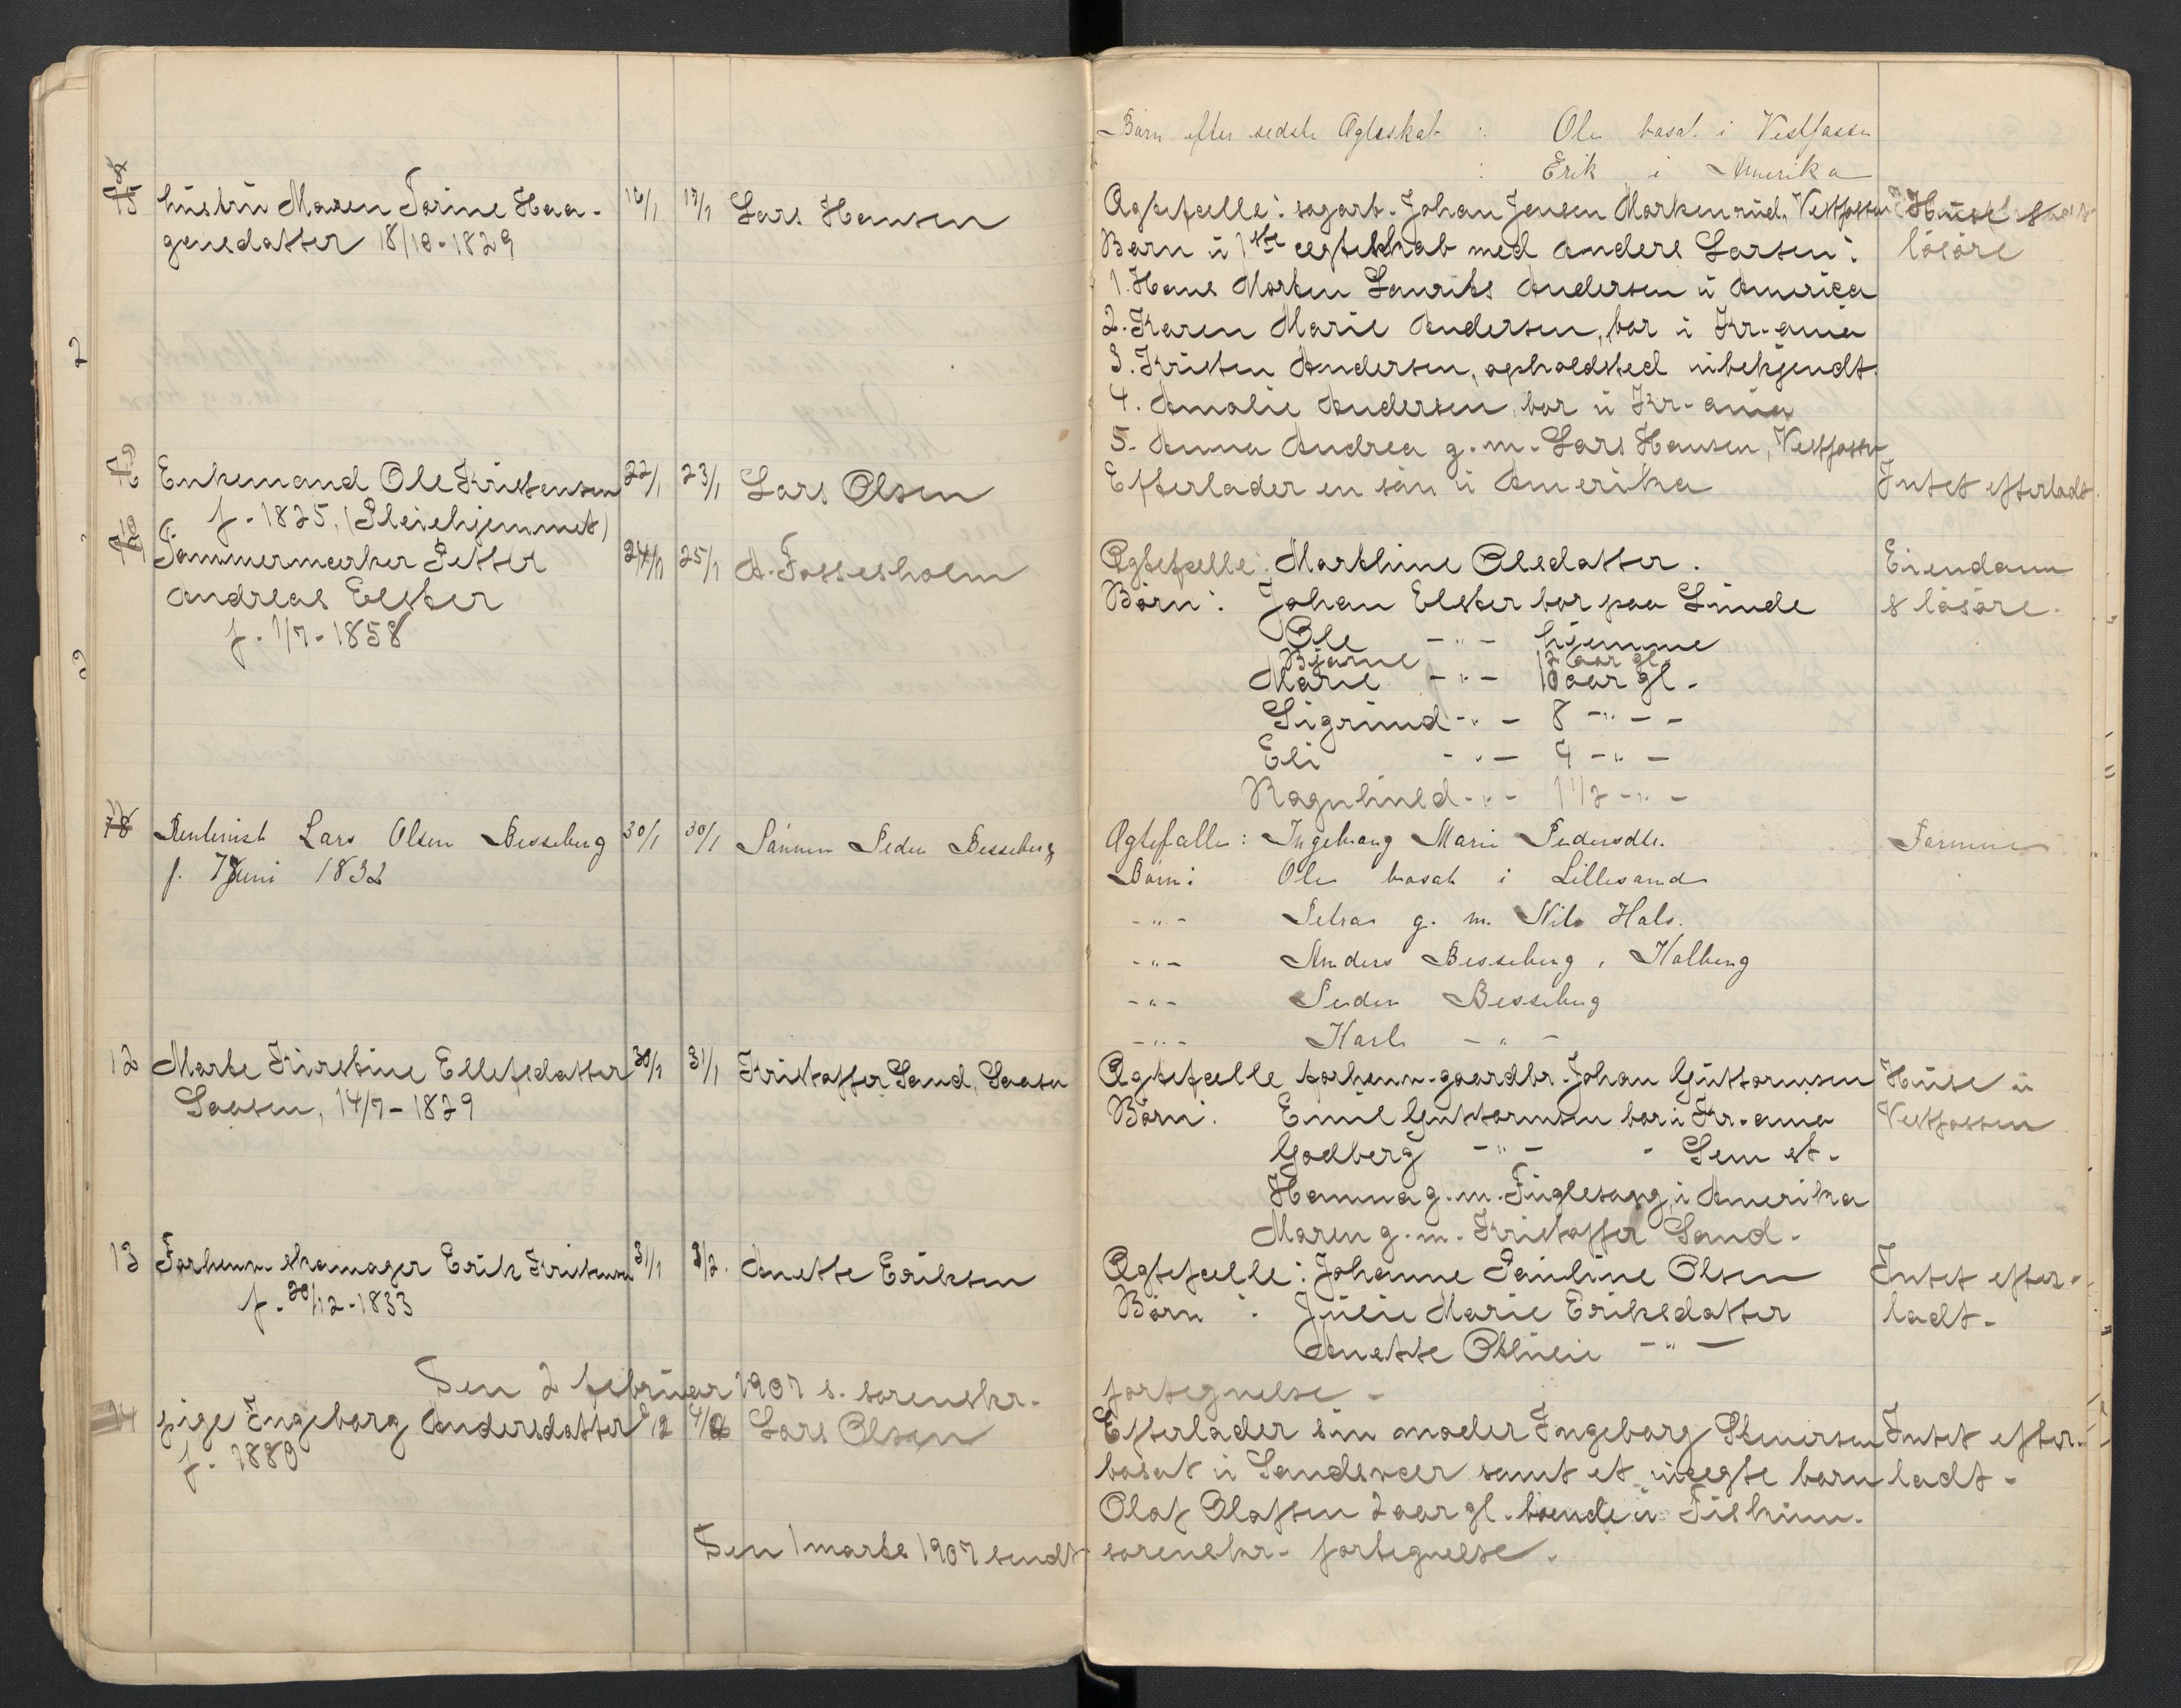 Børn efter sidste Ægteskab : Ole bosat i Vestfossen
: Erik i Amerika
hustru Maren Torine Haa-
gensdatter 18/10-1829
16/1 17/1 Lars Hansen
Ægtefælle: sagarb. Johan Jensen Morkenrud, Vestfossen
Børn i 1ste ægteskab med Anders Larsen:
1. Hans Morten Laurits Andersen i America
2. Karen Marie Andersen, bor i Kr-ania
3. Kristen Andersen, opholdsted ubekjendt.
4. Amalie Andersen, bor i Kr-ania
5. Anna Andrea g.m. Lars Hansen, Vestfossen
Huse &
løsøre
Enkemand Ole Kristensen
f. 1825, (Pleiehjemmet)
22/1 23/1 Lars Olsen
Efterlader en søn i Amerika
Intet efterladt.
Tømmermerker Petter
Andreas Elster
f. 1/7-1858
24/1 25/1 A. Fossesholm
Ægtefælle: Marthine Olsdatter.
Børn: Johan Elster bor paa Lunde
Ole -"- hjemme
Bjarne 12 aar gl.
Marie -"- 10 aar gl.
Sigrund -"- 8 -"- -
Eli -"- 4 -"- -
Ragnhild -"- 1 1/2 -"- -
Eiendom
& løsøre.
Rentenist Lars Olsen Besseberg
f. 7 Juni 1832
30/1 30/1 Sønnen Peder Besseberg
Ægtefælle: Ingeborg Marie Pedersdtr.
Børn: Ole bosat i Lillesand
-"- Petra g. m. Nils Hals.
-"- Anders Besseberg, Kolberg
-"- Peder Besseberg
-"- Karl -"-
Formue
12 Marte Kirstine Ellefsdatter
Laasen, 14/7-1829
30/1 31/1 Kristoffer Sand, Laasen
Ægtefælle forhenv. gaardbr. Johan Guttormsen
Børn: Emil Guttormsen bor i Kr.ania
Godberg -"- - Sem st.
Hanna g.m. Fuglesang, i Amerika
Maren g.m. Kristoffer Sand.
Huse i
Vestfossen
13 Forhenv. skomager Erik Kristensen
f. 20/12-1833
31/1 3/2. Anette Eriksen
Ægtefælle: Johanne Pauline Olsen
Børn: Julie Marie Eriksdatter
Anette Othilie -"-
Intet efter-
ladt.
Den 2 februar 1907 s. sorenskr. fortegnelse.
14 pige Ingeborg Andersdatter
f. 1880
Lars Olsen
Efterlader sin moder Ingeborg Stenersen
bosat i Sandsvær samt et uægte barn
Olaf Olafsen 2 aar gl. boende i Fiskum.
Intet efter-
ladt.
Den 1 marts 1907 sendt sorenskr. fortegnelse.